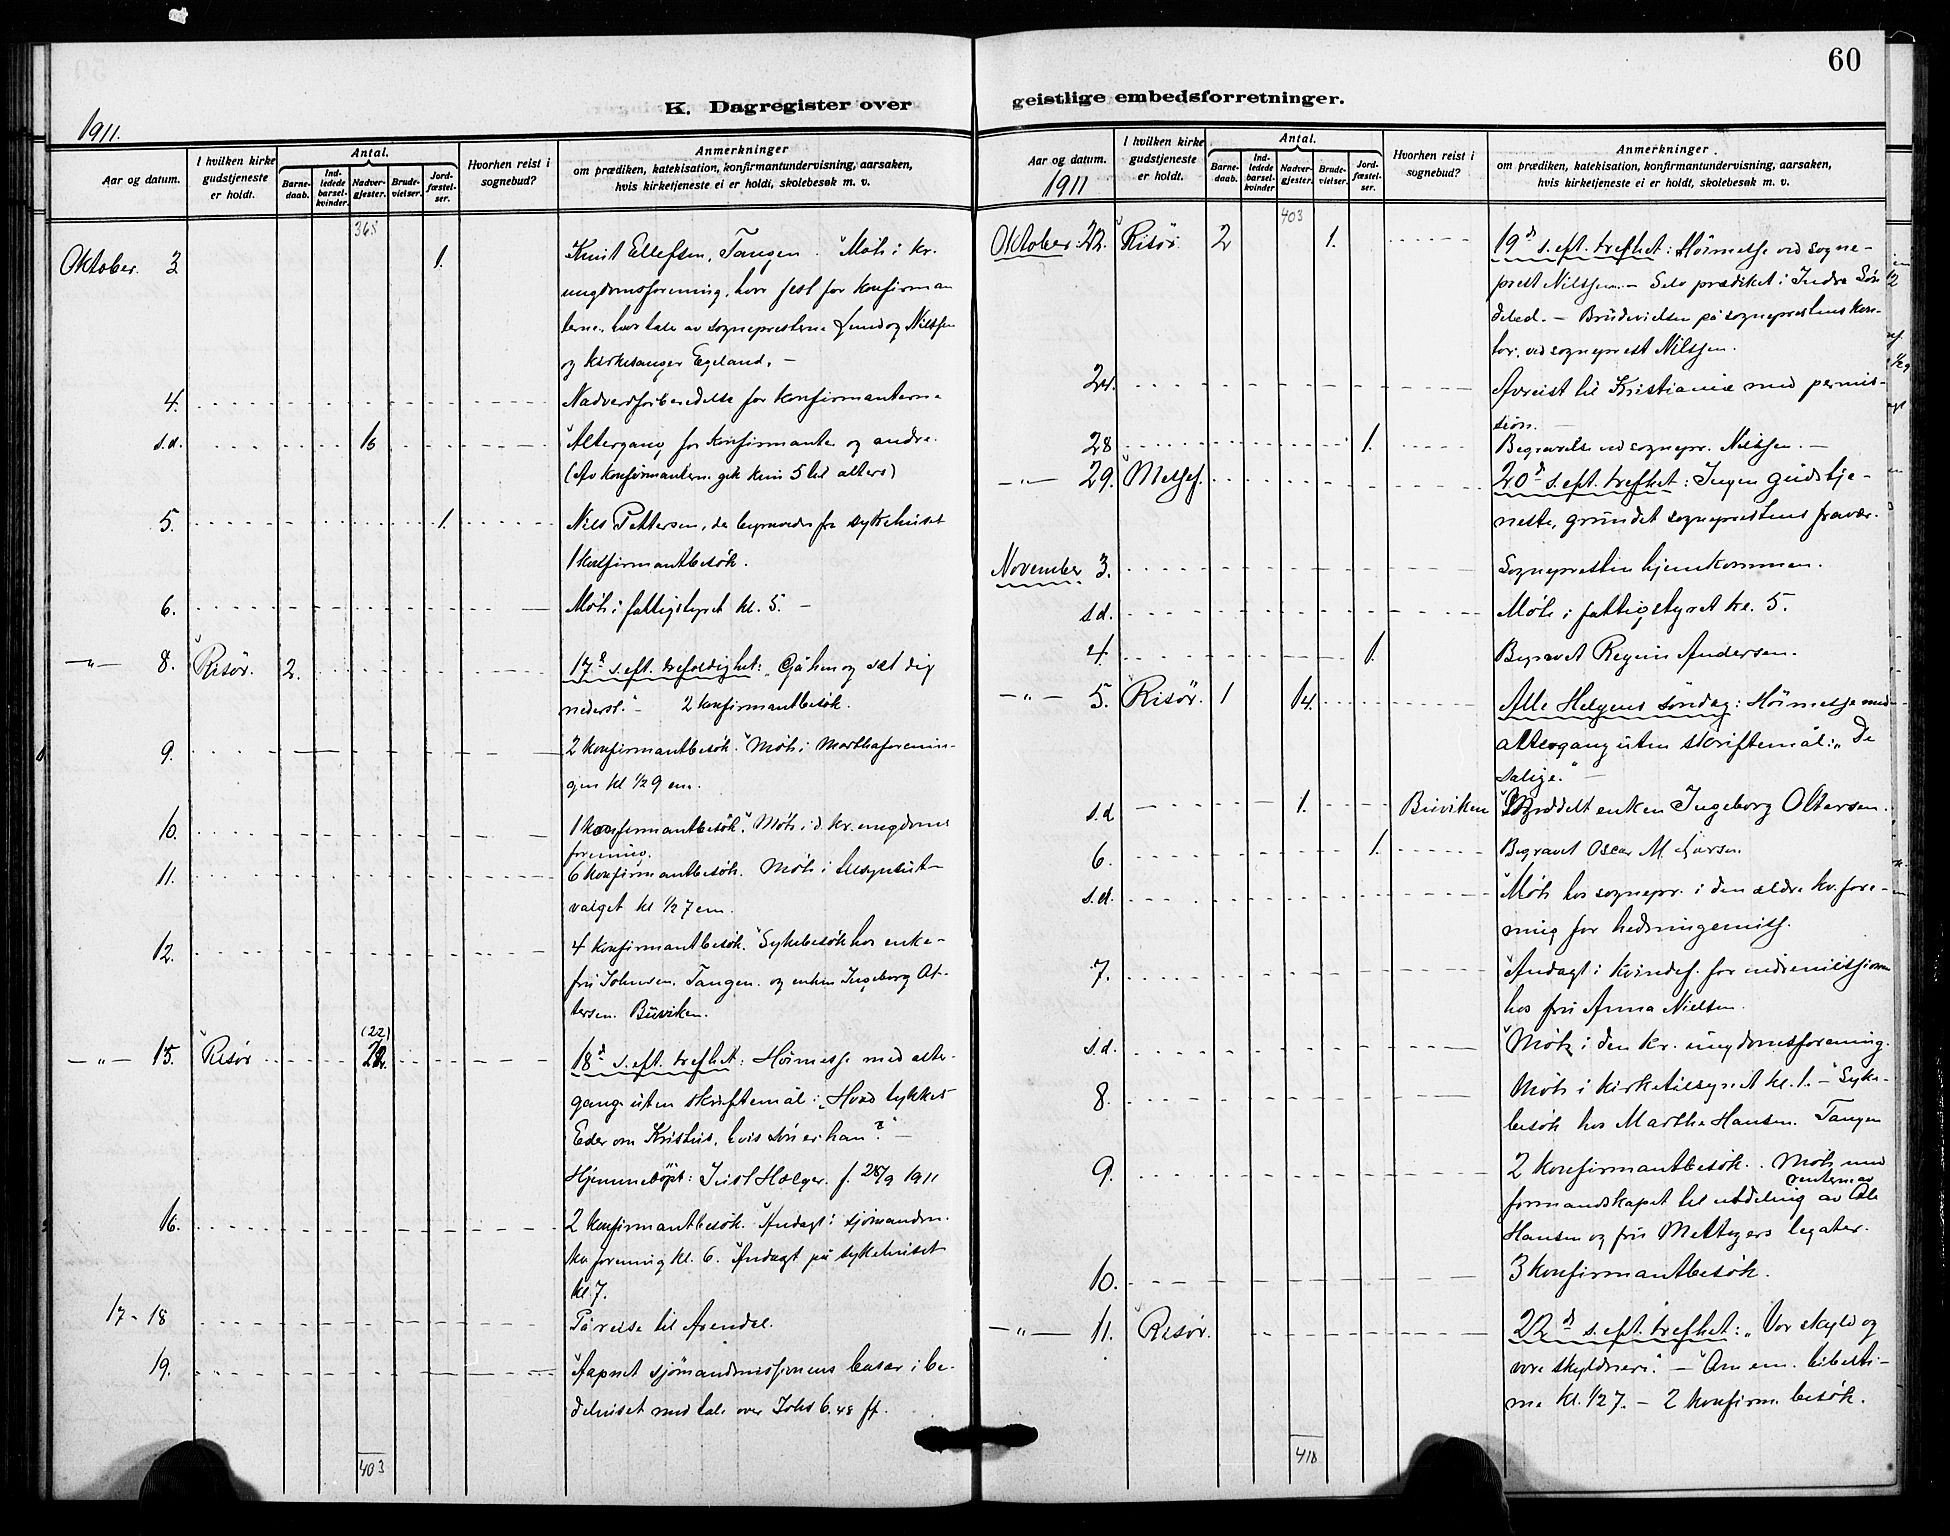 60
K. Dagregister over geistlige embedsforretninger.
1911.
Aar og datum.
I hvilken kirke gudstjeneste er holdt.
Antal.
Barne-daab.
Ind-ledede barsel-kvinder.
Nadver-gjester.
Brude-vielser.
Jord-fæstel-ser.
Hvorhen reist i sognebud?
Anmerkninger
om prædiken, katekisation, konfirmantundervisning, aarsaken,
hvis kirketjeneste ei er holdt, skolebesøk m. v.
365
Oktober. 3 1. Knut Ellefsen, Tangen. Møte i kr.
ungdomsforening, hvor fest for konfirman
terne, hvor taler av sognepresterne Lund og Nilssen
og kirkesanger Egeland. –
4. Nadverdforberedelse for konfirmanterne
s.d. 16 Altergang for konfirmanter og andre.
(Av konfirmanterne gik kun 5 til alters)
5. 1. Nils Pettersen, der begravedes fra sykehuset
1 konfirmantbesök.
6. Möte i fattigstyret kl. 5. –
–"– 8. Risör. 2. 17de s. eft. trefoldighet: "Gå hen og sæt dig
nederst." – 2 konfirmantbesök.
9. 2 konfirmantbesök. Möte i Marthaforenin-
gen kl 1/2 9 em.
10. 1 konfirmantbesök. Möte i d. kr. ungdoms
forening.
11. 6 konfirmantbesök. Möte i
valget kl 1/2 7 em.
12. 4 konfirmantbesök. Sykebesök hos enke-
fru Johnsen, Tangen. og enken Ingeborg Ot-
tersen. Buviken.
(22)
–"– 15. Risör 22. 18de s. eft. trefhet: Höimesse med alter-
gang uten skriftemål: "Hvad tykkes
Eder om Kristus, hvis sön er han?" –
Hjemmedöpt: Just Holger. f. 28/9 1911
16. 2 konfirmantbesök. Andagt i sjömandsm.
kv. forening kl. 6. Andagt på sykehuset
kl 7.
17 - 18 På reise til Arendal.
19. Aapnet sjömandsmissionens basar i be-
dehuset med tale over Johs 6,48 ff.
403
Aar og datum.
1911
I hvilken kirke gudstjeneste er holdt.
Antal.
Barne-daab.
Ind-ledede barsel-kvinder
Nadver-gjester.
Brude-vielser.
Jord-fæstel-ser.
Hvorhen reist i sognebud?
Anmerkninger.
om prædiken, katekisation, konfirmantundervisning, aarsaken,
hvis kirketjeneste ei er holdt, skolebesøk m. v.
403
Oktober 22. Risör 2 1. 19de s. eft. trefhet: Höimesse ved sogne-
prest Nilssen. – Selv prædiket i Indre Sön
deled. – Brudevielsen på sogneprestens kon-
tor, ved sogneprest Nilssen.
24. Avreist til Kristiania med permis-
sion. –
28 1. Begravelse ved sognepr. Nilssen. –
–"– 29. Messef. 20de s. eft. trefhet: Ingen gudstje-
neste, grundet sogneprestens fravær.
November 3. Sognepresten hjemkommen.
s.d. Möte i fattigstyret kl. 5.
4 1. Begravet Regine Andersen.
–"– 5. Risör. 1 14. Alle Helgens söndag: Höimesse med
altergang uten skriftemål: "De
salige." –
s.d 1. Buviken Meddelt enken Ingeborg Ottersen.
6. 1. Begravet Oscar M. Larsen
s.d. Möte hos sognepr. i den ældre kv. fore-
ning for hedningemiss.
7. Andagt i kvindef. for indremissionen
hos fru Anna Nielsen.
s.d. Möte i den kr. ungdomsforening.
8. Möte i kirketilsynet kl. 1. – Syke-
besök hos Marthe Hansen. Tangen
9. 2 konfirmantbesök. Möte med
formandskapet til utdeling renterne av av Ole
Hansen og fru Mettegers legater.
10. 3 konfirmantbesök.
–"– 11. Risör. 22de s. eft. trefhet: "Vor skyld og
vore skyldnere." – Om em. bibelti-
me kl. 1/2 7. – 2 konfirm. besök.
418